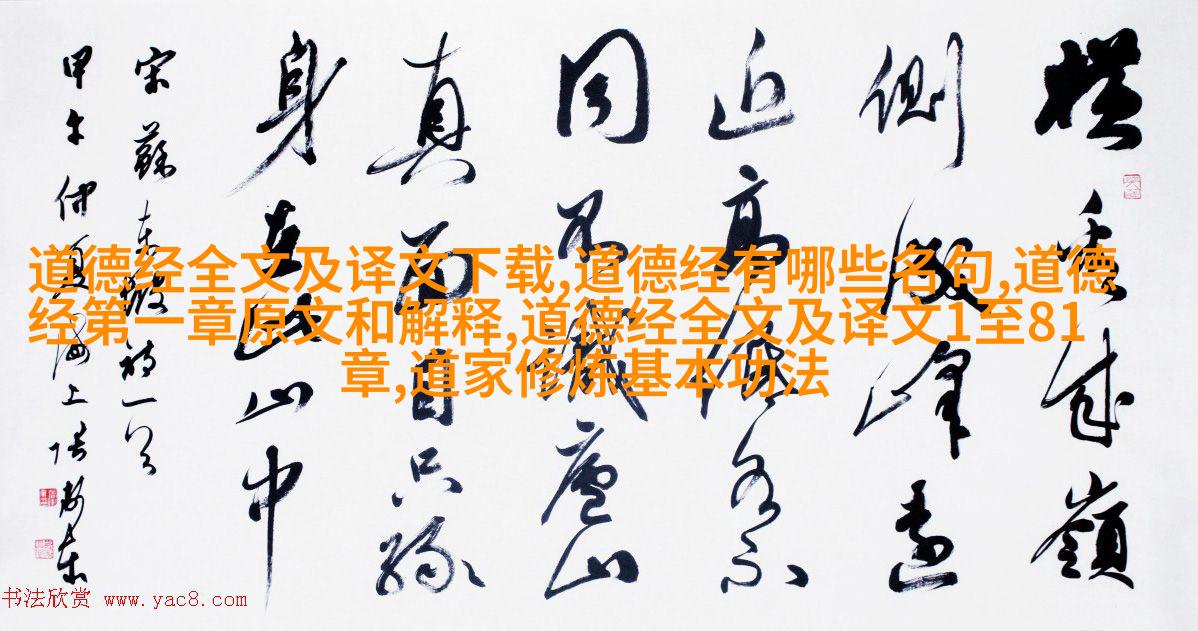 横看成嶺
側成峰遠
近高低各不
同不識廬山
真面目只緣
身在此山中
宋蘇东坡詩一首
甲午仲夏海上張
道德经全文及译文下载,道德经有哪些名句,道德
经第一章原文和解释,道德经全文及译文1至81
章,道家修炼基本功法
书法欣赏 www.yac8.com